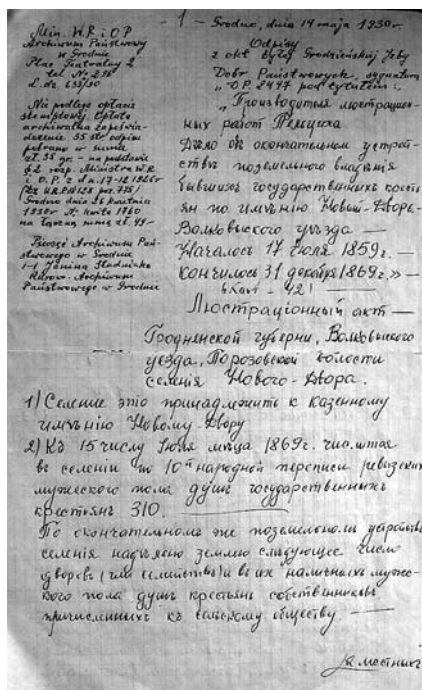 - 1 -
Min. W.R. i O.P.
Archiwum Państwowy
w Grodnie
Plac Teatralny 2
tel. No 236
L. dz. 633/30
Nie podlega opłacie
stemplowej. Opłata
archiwalna zapoświa-
dczenie 55 str. odpisu
pobrano w sumie
zł. 55 gr. - na podstawie
§ 2 rozp. Ministra W.R.
i O.P. z d.
Grodno dnia 26 kwietnia
1930 r. N. kwitu 1760
na łączną sumę zł. 49 -
Pieczęć Archiwum Pań-
stwowego w Grodnie
(-) Janina
Archiwum
Państwowego w Grodnie
Grodno, dnia 14 maja 1930 r.
Odpisy
z akt byłej Grodzieńskiej Izby
Dóbr Państwowych, sygnatura
„O.P. 2447 pod tytułem:„
„Производителя люстрацион-
ных работ
Дѣло объ окончательном устрой-
ствѣ поземельного владѣния
бывших государственных кость
ян по имѣнию Новый-Дворъ-
Волковыского уѣзда —
Началось 17 июля 1859 г. —
Кончилось 31 декабря 1869 г.» —
42!
Люстрационный акт —
Гродненской губерни, Волковыского
уезда, Порозовской волости
селения Нового-Двора.
1) Селение это принадлежить к казенному
имѣнию Новому Двору
2) Къ 15 числу Июля мѣца 1869 г. числится
въ селении по 10й народной переписи ревизских
мужеского пола душъ государственныхъ
крестьянъ 310.
По окончательном же поземельном устройствѣ
селения надѣлено землею следующее число
дворовъ (или семействъ) и въ них наличныхъ муже-
ского пола душъ крестьян собственниковъ
причисленныхъ къ сельскому обществу. —